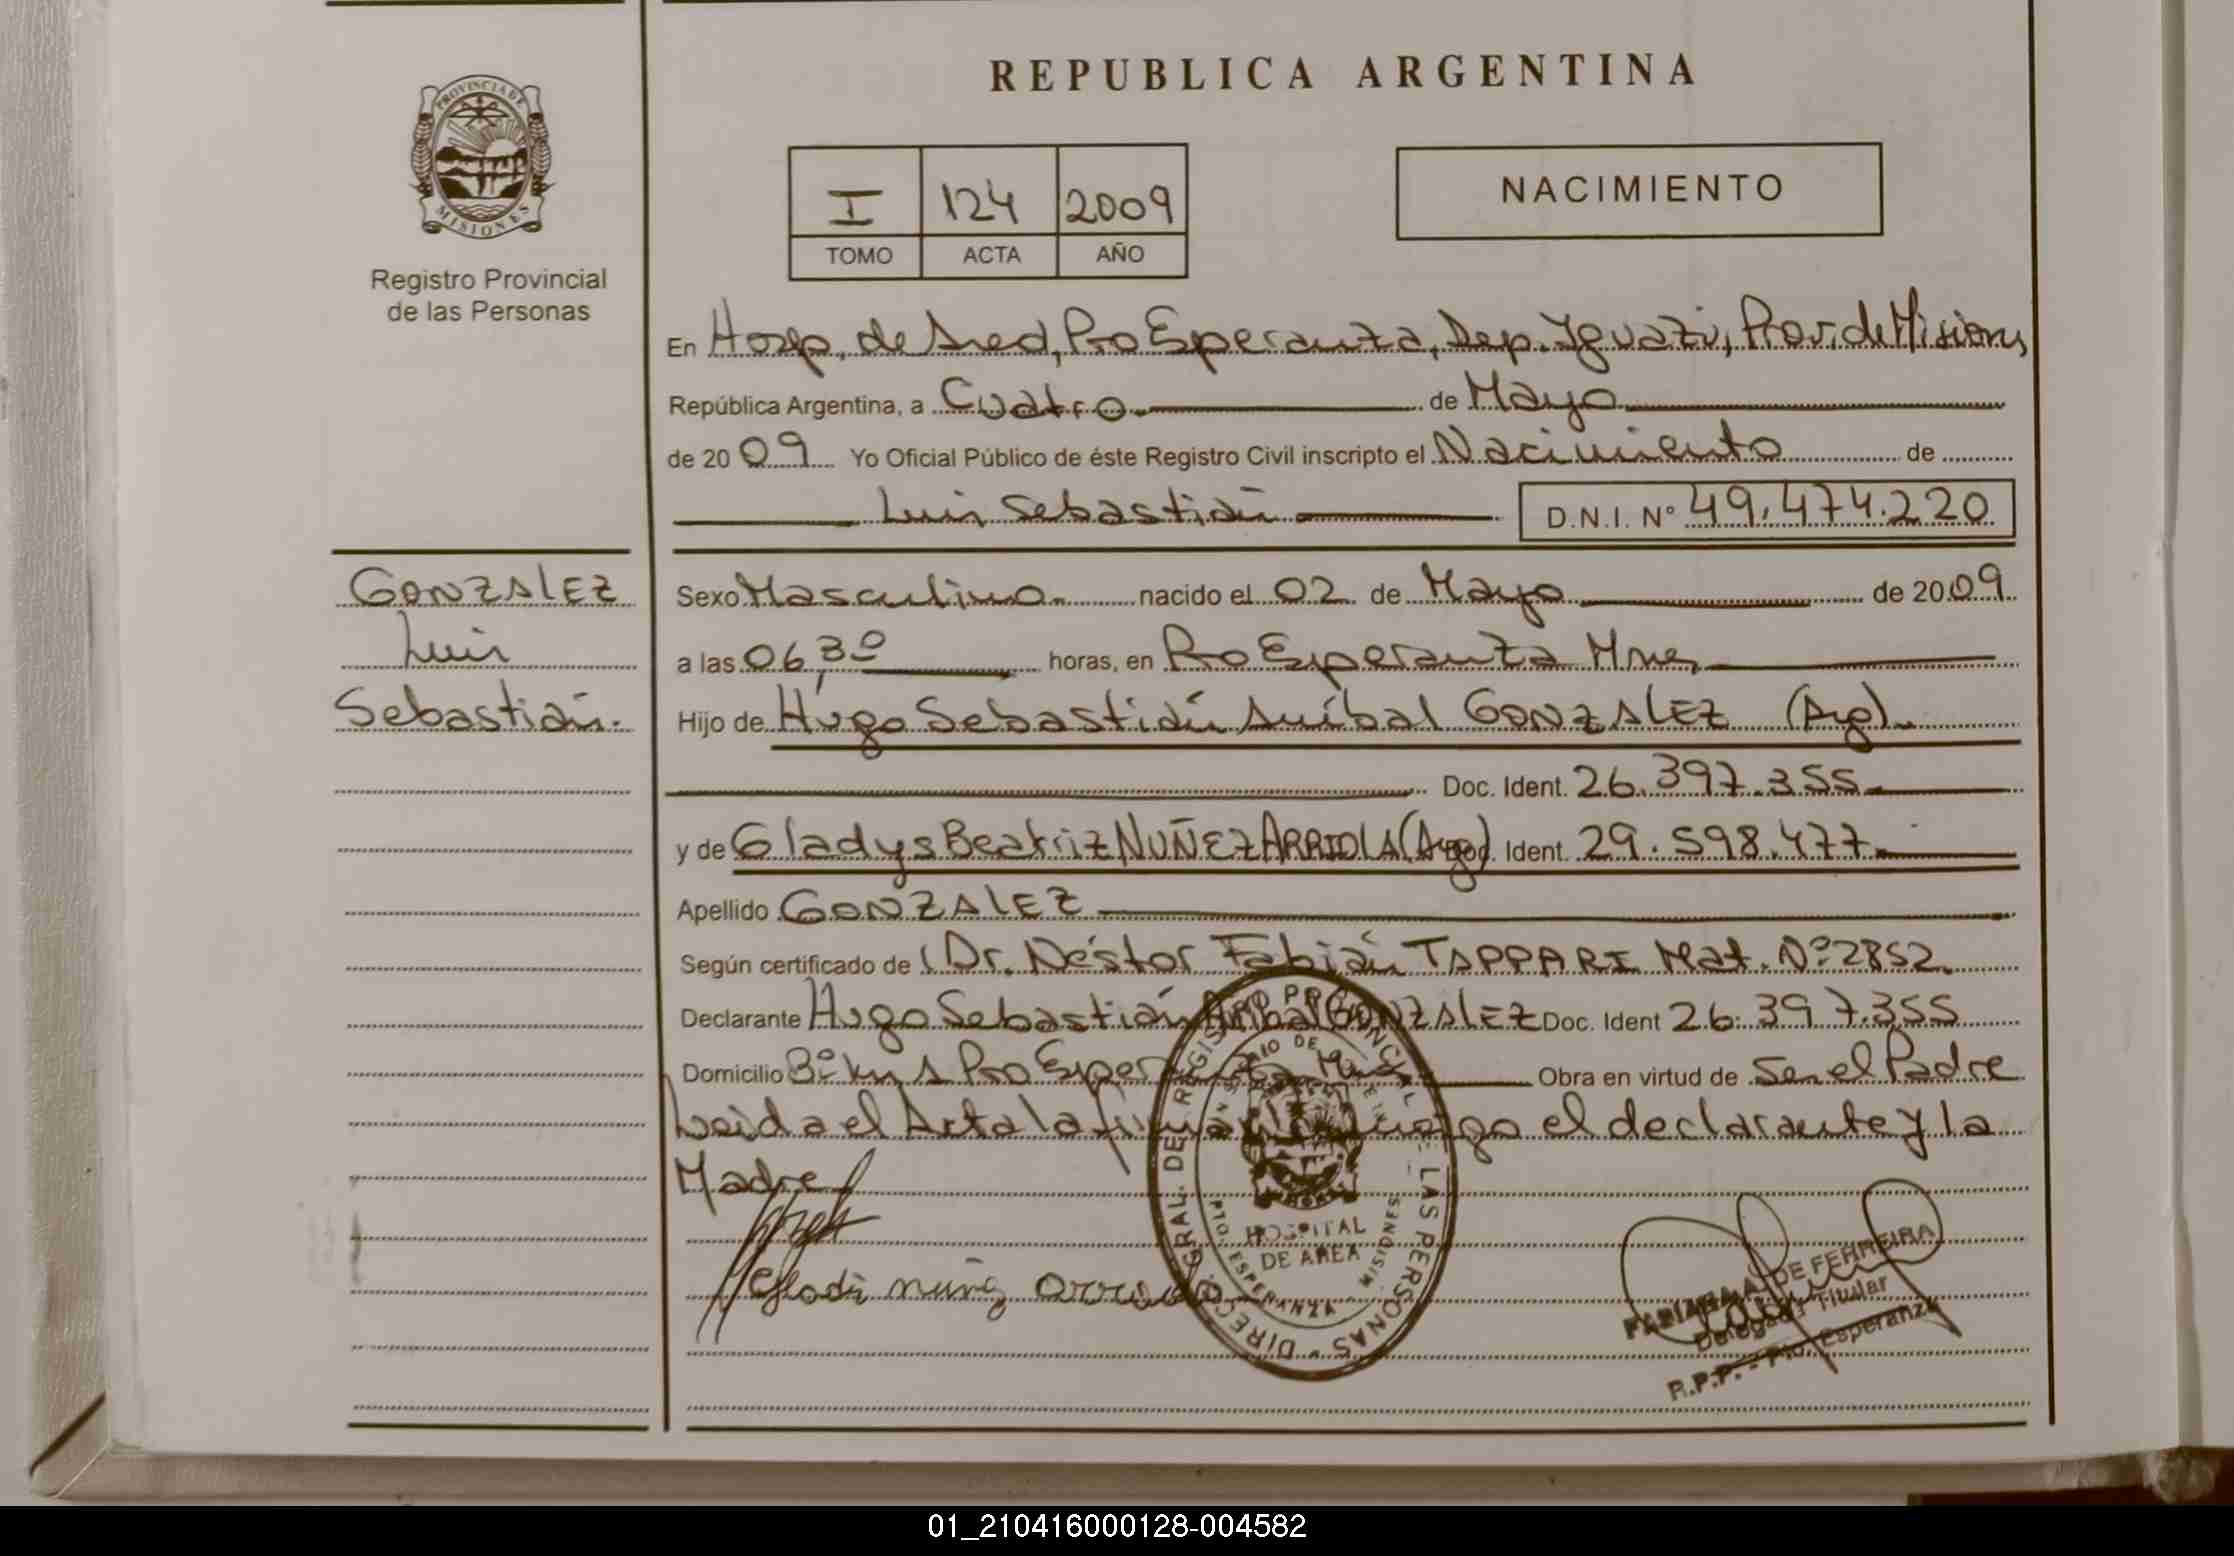 REPUBLICA ARGENTINA
PROVINCIA DE
MISIONES
Registro Provincial
de las Personas
I 124 2009
TOMO ACTA AÑO
NACIMIENTO
En Hosp. de Area, Pto Esperanza, Dep. Iguazú, Prov. de Misiones,
República Argentina, a Cuatro de Mayo
de 2009 Yo Oficial Público de éste Registro Civil inscripto el Nacimiento de
Luis Sebastián D.N.I. Nº 49.474.220
GONZALEZ
Luis
Sebastián.
Sexo Masculino. nacido el 02 de Mayo de 2009
a las 06,30 horas, en Pto Esperanza Mnes,
Hijo de Hugo Sebastián Aníbal GONZALEZ (Arg).
Doc. Ident. 26.397.355
y de Gladys Beatriz NUÑEZ ARRIOLA (Arg) Doc. Ident. 29.598.477
Apellido GONZALEZ
Según certificado de Dr. Néstor Fabián TAPPARI Mat. Nº 2852
Declarante Hugo Sebastián Aníbal GONZALEZ Doc. Ident 26.397.355
Domicilio Bº Pto Esperanza Obra en virtud de Ser el Padre
Leida el Acta la firman el declarante y la
Madre
DIREC. GRAL. DEL REGISTRO PROVINCIAL DE LAS PERSONAS
HOSPITAL
DE AREA
PTO. ESPERANZA MISIONES
DE FERREIRA
Delegada Titular
R.P.P. - Pto. Esperanza
01_210416000128-004582